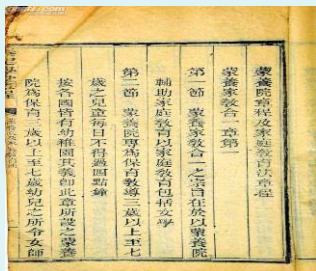 蒙養院章程及家庭教育法章程
蒙養家教合一章第一
第一節　蒙養家教合一之宗旨在於以蒙養院
輔助家庭教育以家庭教育包括女學
第二節　蒙養院專為保育教導三歲以上至七
歲之兒童每日不得過四點鐘
按各國皆有幼稚園其義即此章所設之蒙養
院為保育三歲以上至七歲幼兒之所令女師